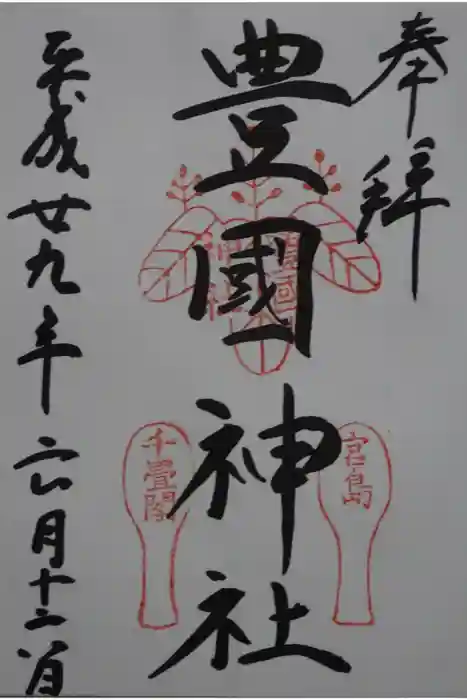 奉拝
豊國神社
豊国神社
宮島
千畳閣
平成廿九年六月十二日